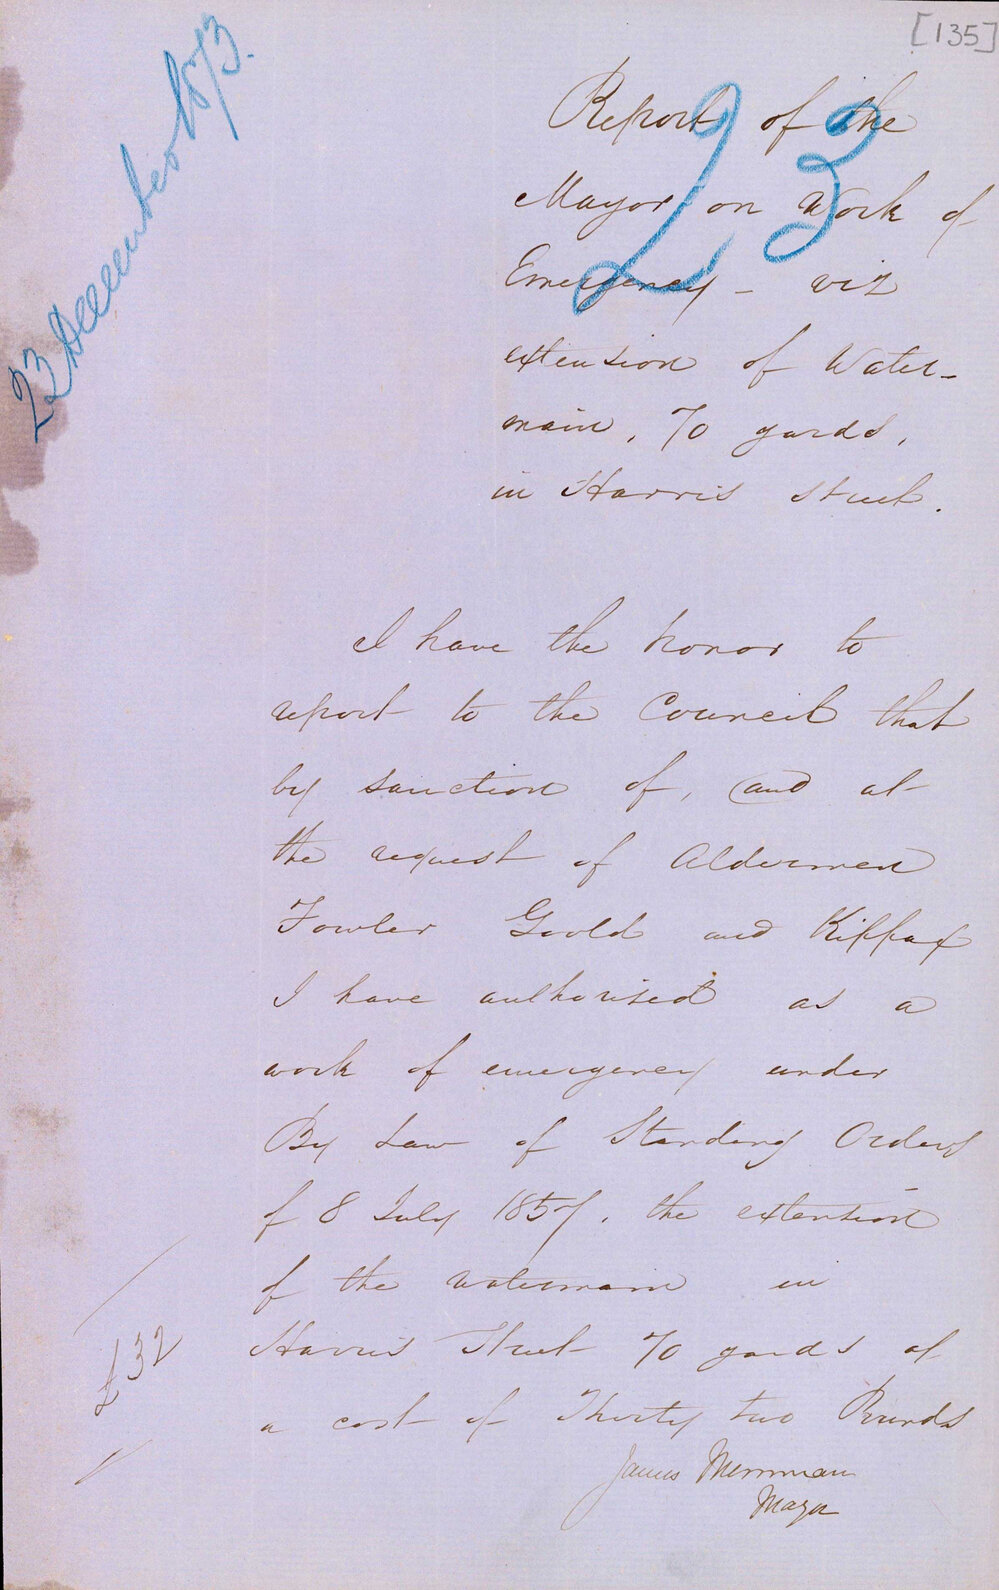 [135]
23 December 1873.
23
Report of the
Mayor on Work of
Emergency - viz
extension of Water-
main, 70 yards,
in Harris Street.
I have the honor to
report to the Council that
by sanction of, and at
the request of Aldermen
Fowler Goold and Kippax
I have authorised as a
work of emergency under
By Law of Standing Orders
of 8 July 1857, the extension
of the watermain in
Harris Street 70 yards at
a cost of Thirty two Pounds
£32
James Merriman
Mayor